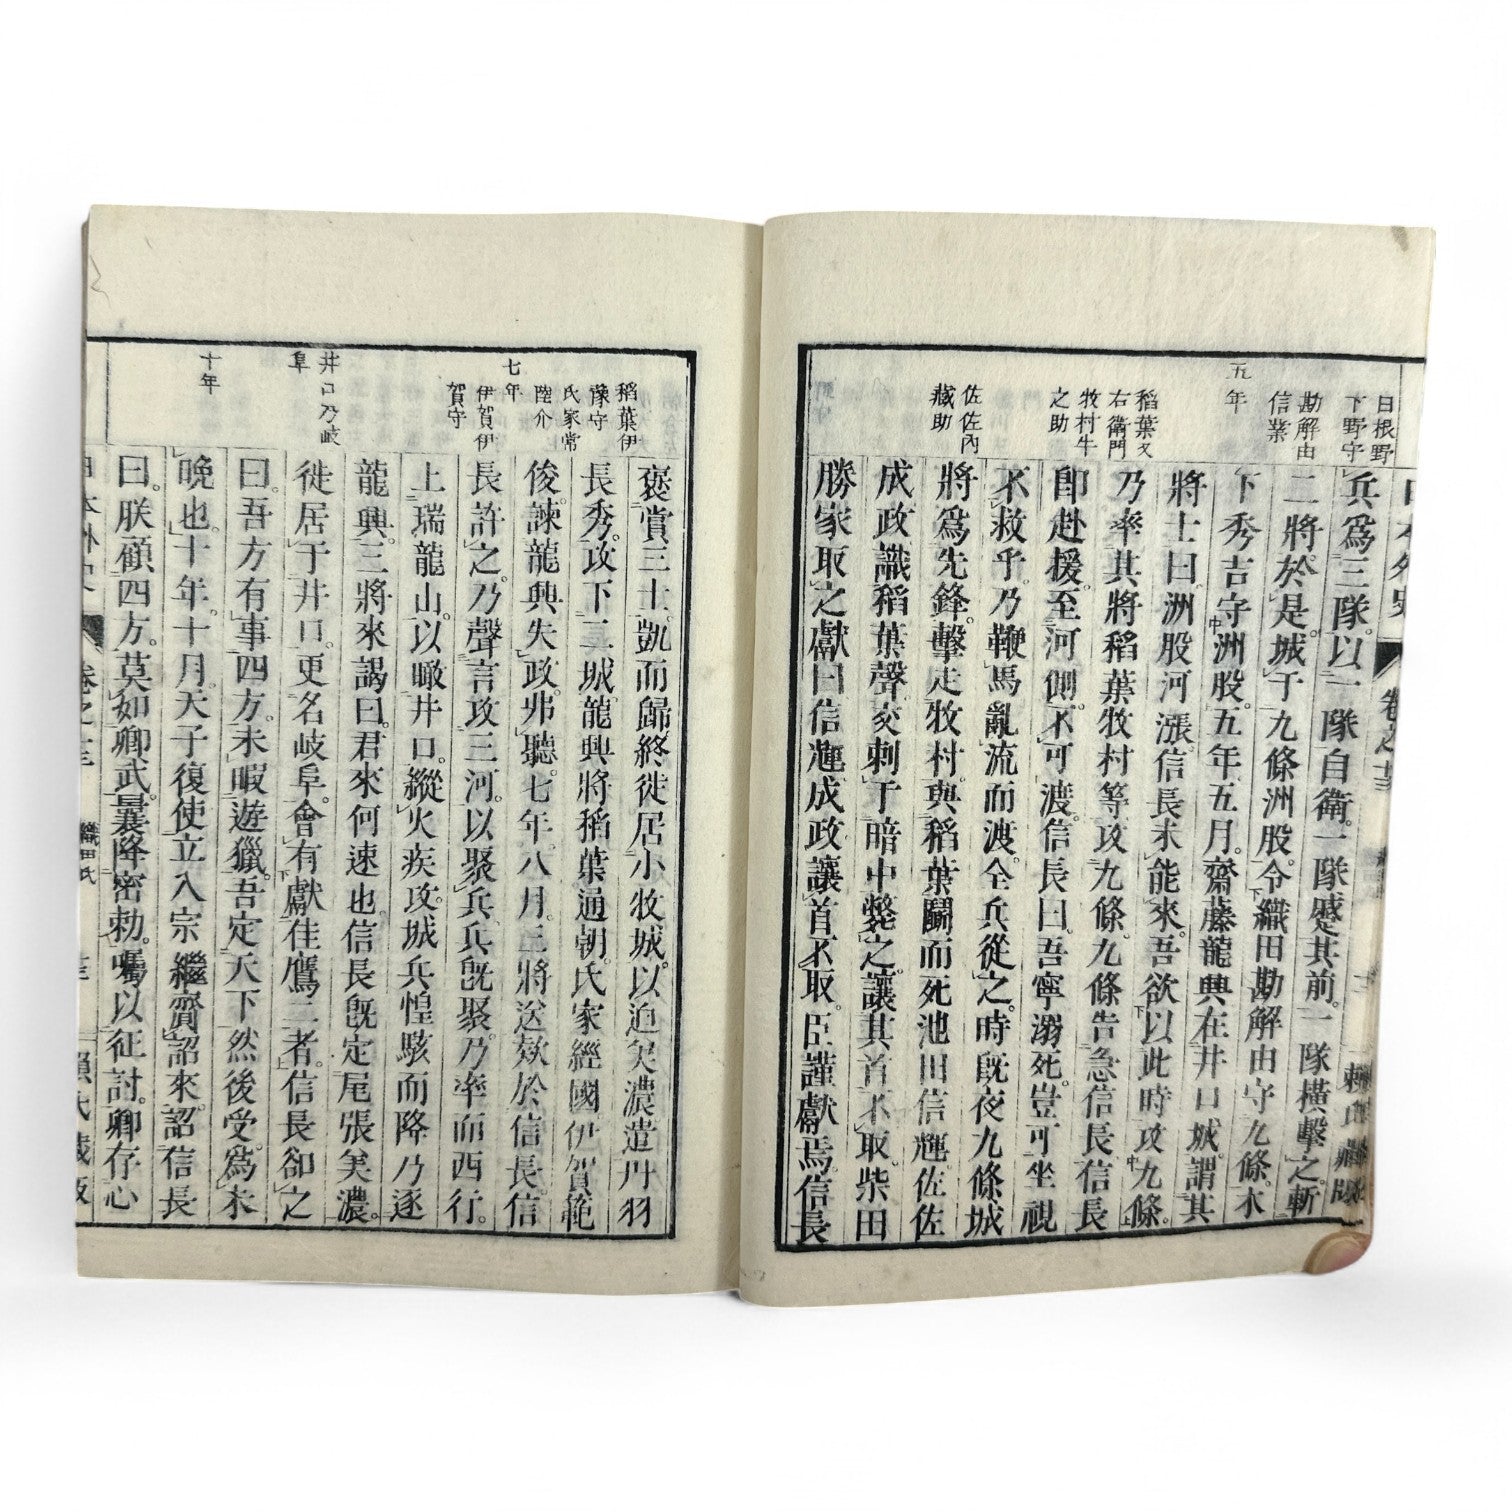 日本外史
卷之十三
賴氏藏版
日根野
下野守
勘解由
信業
五年
稻葉又
右衛門
牧村牛
之助
佐佐內
藏助
兵爲三隊。以一隊自衛。一隊蹙其前。一隊橫擊之。斬
二將。於是。城于九條洲股。令織田勘解由守九條。木
下秀吉守洲股。五年五月。齋藤龍興在井口城。謂其
將士曰。洲股河漲。信長未能來。吾欲以此時攻九條。
乃率其將稻葉牧村等攻九條。九條告急信長。信長
即赴援。至河側。不可渡。信長曰。吾寧溺死。豈可坐視
不救乎。乃鞭馬亂流而渡。全兵從之。時既夜。九條城
將爲先鋒。擊走牧村。與稻葉鬬而死。池田信輝佐佐
成政識稻葉聲。交刺于暗中斃之。讓其首不取。柴田
勝家取之獻曰。信輝成政讓首不取。臣謹獻焉。信長
稻葉伊
豫守
氏家常
陸介
七年
伊賀伊
賀守
井口乃岐
阜
十年
褒賞三士。凱而歸。終徙居小牧城。以迫美濃。遣丹羽
長秀。攻下二城。龍興將稻葉通朝。氏家經國。伊賀範
俊。諫龍興失政。弗聽。七年。八月。三將送欵於信長。信
長許之。乃聲言攻三河。以聚兵。兵既聚。乃率而西行。
上瑞龍山。以瞰井口。縱火疾攻。城兵惶駭而降。乃逐
龍興。三將來謁曰。君來何速也。信長既定尾張美濃。
徙居于井口。更名岐阜。會有獻佳鷹二者。信長卻之
曰。吾方有事四方。未暇遊獵。吾定天下。然後受。爲未
晚也。十年。十月。天子復使立入宗繼齎詔來。詔信長
曰。朕顧四方。莫如卿武。曩降密勅。囑以征討。卿存心
日本外史
卷之十三
織田氏
賴氏藏版